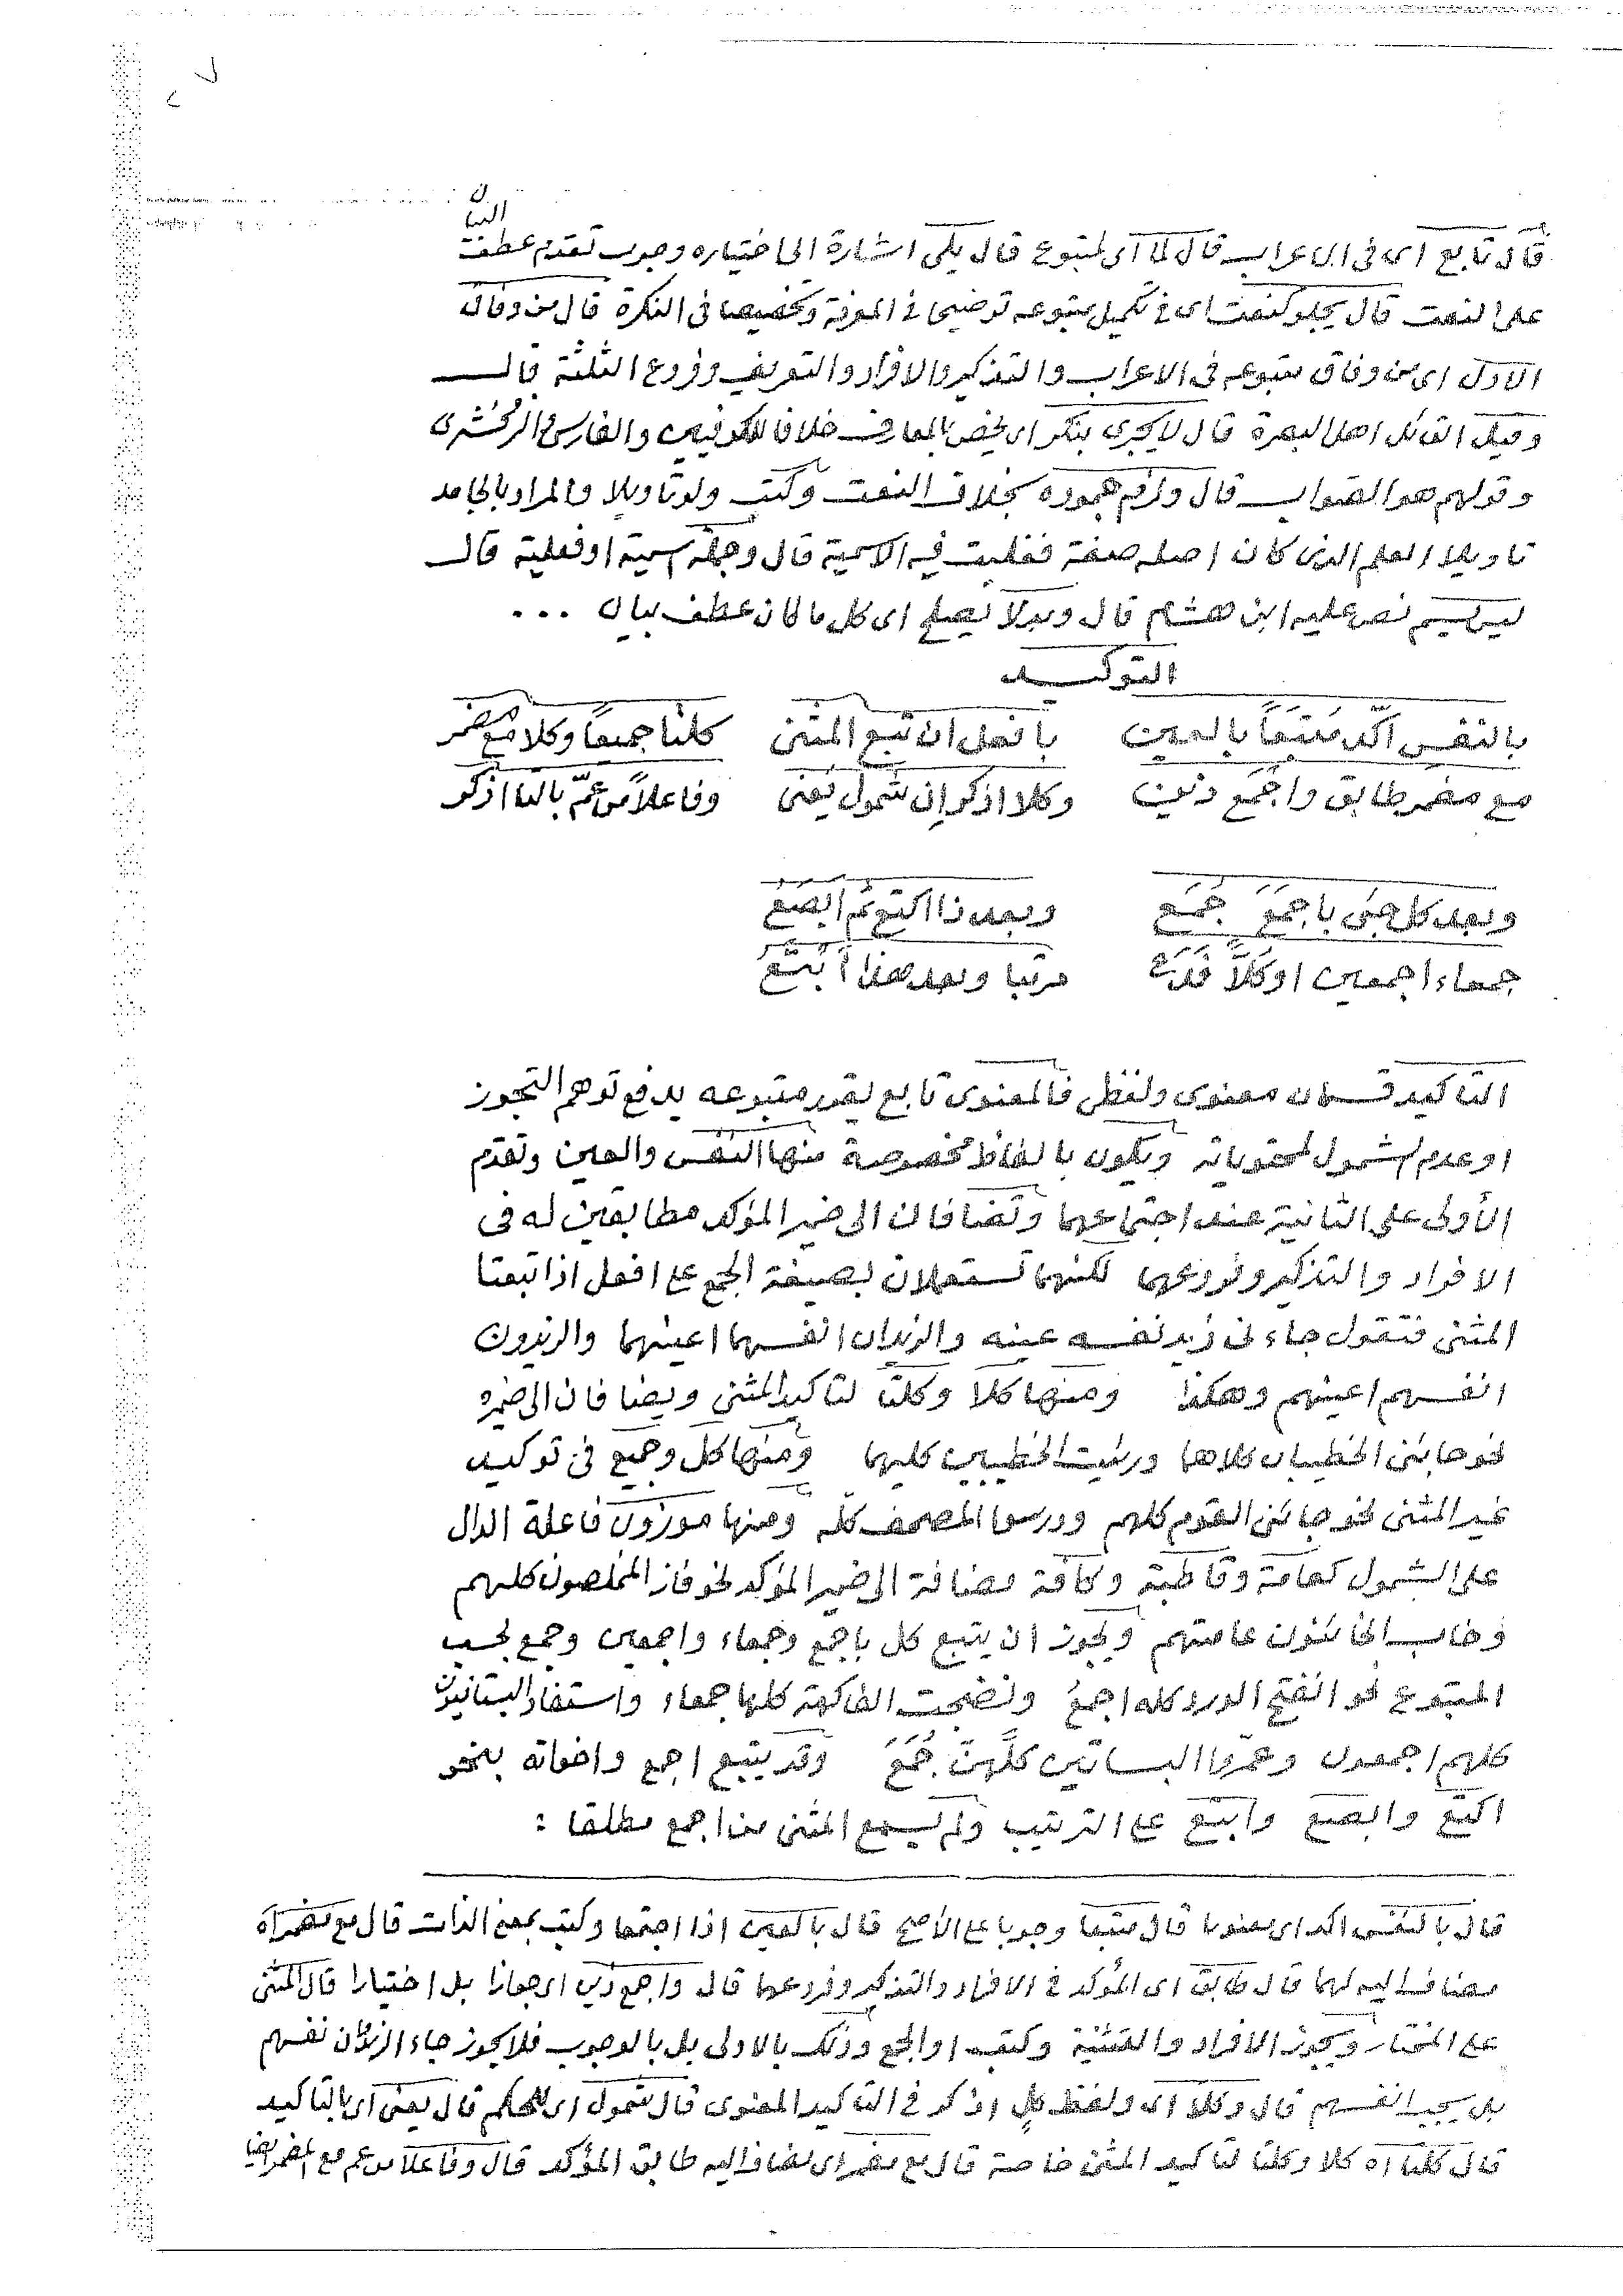 قال تابع اى فى الاعراب قال لما اى لمتبوع قال يلى اشارة الى اختياره وجوب تقدم عطف البيان
على النعت قال يجلو كنعت اى فى تكميل متبوعه توضيحا فى المعرفة وتخصيصا فى النكرة قال من وفاق
الاول اى من وفاق متبوعه فى الاعراب والتذكير والافراد والتعريف وفروع الثلثة قال
وقيل القائل اهل البصرة قال لا يجرى بنكر اى يخص بالمعارف خلافا للكوفيين والفارسى والزمخشرى
وقولهم هو الصواب قال ولزم جموده بخلاف النعت وكتب ولو تاويلا والمراد بالجامد
تاويلا العلم الذى كان اصله صفة فغلبت فيه الاسمية قال وجملة اسمية او فعلية قال
ليس يسم نص عليه ابن هشام قال وبدلا يصلح اى كل ما كان عطف بيان ...
التوكيد
بالنفس اكّد مُتبَعاً بالعين بافعل ان تبع المثنى كلتا جميعاً وكلا مع مضمر
مع مضمر طابق واجمع ذين وكلا اذكر إن شمول يُعنى وفاعلاً من عمّ بالتا اذكر
وبعد كل جئى باجمَعَ جُمَع وبعد ذا اكتع ثم ابصع
جمعاء اجمعين او كلاًّ فدَع مرتبا وبعد هذا أبتع
التاكيد قسمان معنوى ولفظى فالمعنوى تابع يقرر متبوعه يدفع توهم التجوز
او عدم الشمول لمحتوياته ويكون بالفاظ مخصوصة منها النفس والعين وتقدم
الأولى على الثانية عند اجتماعهما وتضافان الى ضمير المؤكد مطابقين له فى
الافراد والتذكير وفروعهما لكنهما تستعملان بصيغة الجمع على افعل اذا تبعتا
المثنى فتقول جاءنى زيد نفسه عينه والزيدان انفسهما اعينهما والزيدون
انفسهم اعينهم وهكذا ومنها كلا وكلتا لتاكيد المثنى ويضافان الى ضميره
نحو جائنى الخطيبان كلاهما ورئيت الخطيبين كليهما ومنها كل وجميع فى توكيد
غير المثنى نحو جائنى القوم كلهم ودرسوا المصحف كلّه ومنها موزون فاعلة الدال
على الشمول كعامة وقاطبة وكافة مضافة الى ضمير المؤكد نحو فاز المخلصون كلهم
وخاب الخائنون عامتهم ويجوز ان يتبع كل باجمع وجمعاء واجمعين وجمع بحسب
المتبوع نحو انفتح الورد كله اجمعُ ونضجت الفاكهة كلها جمعاء واستفاد البستانيون
كلهم اجمعون وعمّروا البساتين كلَّهنّ جُمَعَ وقد يتبع اجمع واخواته بنحو
اكتع وابصع وابتع على الترتيب ولم يسمع المثنى من اجمع مطلقا :
قال بالنفس اكد اى معنويا قال متبعا وجوبا على الأصح قال بالعين اذا اجتمعا وكتب بمعنى الذات قال مع مضمر اه
مضاف اليه لهما قال طابق اى المؤكد فى الافراد والتذكير وفروعهما قال واجمع ذين اى جوازا بل اختيارا قال المثنى
على المختار ويجوز الافراد والتثنية وكتب او الجمع وذلك بالاولى بل بالوجوب فلا يجوز جاء الزيدون نفسهم
بل يجب انفسهم قال وكلا اى ولفظ كل اذكر فى التاكيد المعنوى قال شمول اى للحكم قال يعنى اى بالتاكيد
قال كلتا اه كلا وكلتا لتاكيد المثنى خاصة قال مع مضمر اى مضاف اليه طابق المؤكد قال وفاعلا من عم مع المضمر ايضا